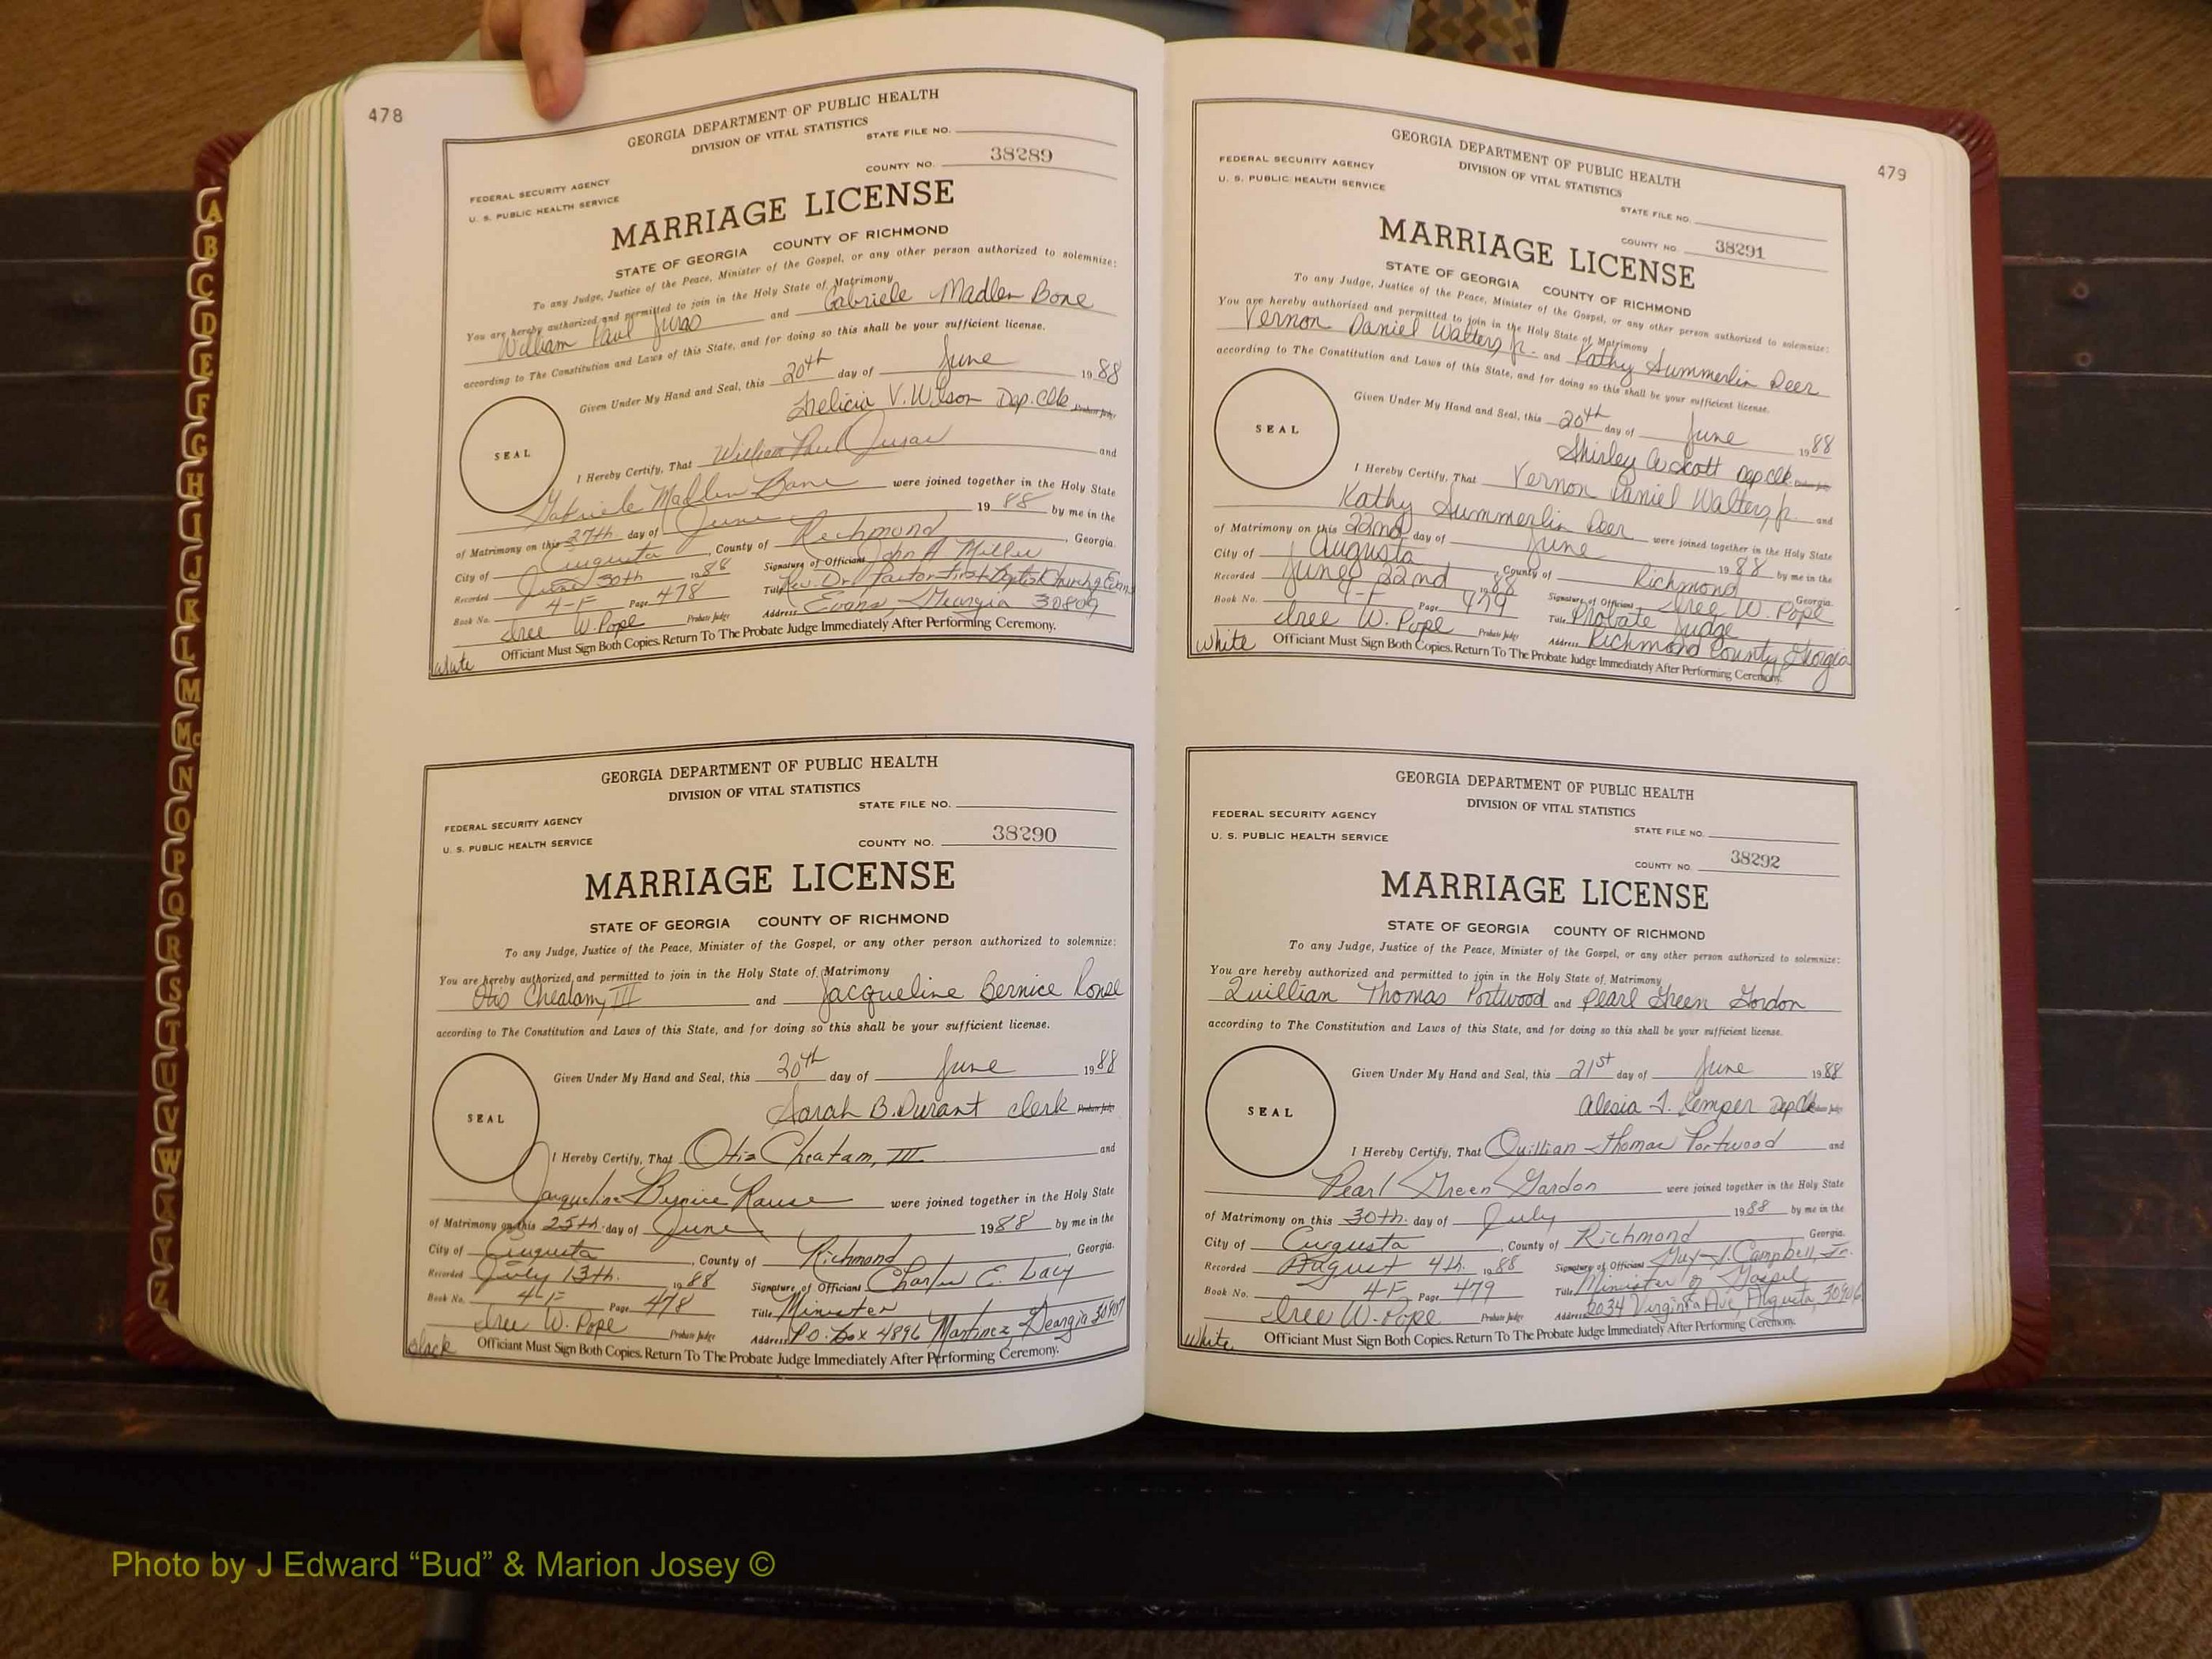 478
GEORGIA DEPARTMENT OF PUBLIC HEALTH
DIVISION OF VITAL STATISTICS
STATE FILE NO.
COUNTY NO. 38289
FEDERAL SECURITY AGENCY
U. S. PUBLIC HEALTH SERVICE
MARRIAGE LICENSE
STATE OF GEORGIA COUNTY OF RICHMOND
To any Judge, Justice of the Peace, Minister of the Gospel, or any other person authorized to solemnize:
You are hereby authorized and permitted to join in the Holy State of Matrimony
William Paul and Gabriele Madlen Bone
according to The Constitution and Laws of this State, and for doing so this shall be your sufficient license.
Given Under My Hand and Seal, this 20th day of June 1988
V. Wilson Dep. Clk Probate Judge
SEAL
I Hereby Certify, That William Paul and
Gabriele Madlen Bone were joined together in the Holy State
of Matrimony on this 27th day of June 1988 by me in the
City of Augusta, County of Richmond, Georgia.
Recorded June 30th 1988 Signature of Officiant John A Miller
Book No. 4-F Page 478 Title Rev. Dr. Pastor First Baptist Church of Evans
Iree W. Pope Probate Judge Address Evans, Georgia 30809
Officiant Must Sign Both Copies. Return To The Probate Judge Immediately After Performing Ceremony.
White
GEORGIA DEPARTMENT OF PUBLIC HEALTH
DIVISION OF VITAL STATISTICS
STATE FILE NO.
FEDERAL SECURITY AGENCY
U. S. PUBLIC HEALTH SERVICE
COUNTY NO. 38290
MARRIAGE LICENSE
STATE OF GEORGIA COUNTY OF RICHMOND
To any Judge, Justice of the Peace, Minister of the Gospel, or any other person authorized to solemnize:
You are hereby authorized and permitted to join in the Holy State of Matrimony
Otis Cheatam, III and Jacqueline Bernice
according to The Constitution and Laws of this State, and for doing so this shall be your sufficient license.
Given Under My Hand and Seal, this 20th day of June 1988
Sarah B. Durant Clerk Probate Judge
SEAL
I Hereby Certify, That Otis Cheatam, III and
Jacqueline Bernice were joined together in the Holy State
of Matrimony on this 25th day of June 1988 by me in the
City of Augusta, County of Richmond, Georgia.
Recorded July 13th. 1988 Signature of Officiant Charles E. Lacy
Book No. 4-F Page 478 Title Minister
Iree W. Pope Probate Judge Address P.O. Box 4896 Martinez, Georgia 30907
Officiant Must Sign Both Copies. Return To The Probate Judge Immediately After Performing Ceremony.
black
479
GEORGIA DEPARTMENT OF PUBLIC HEALTH
DIVISION OF VITAL STATISTICS
FEDERAL SECURITY AGENCY
U. S. PUBLIC HEALTH SERVICE
STATE FILE NO.
COUNTY NO. 38291
MARRIAGE LICENSE
STATE OF GEORGIA COUNTY OF RICHMOND
To any Judge, Justice of the Peace, Minister of the Gospel, or any other person authorized to solemnize:
You are hereby authorized and permitted to join in the Holy State of Matrimony
Vernon Daniel Walters, Jr. and Kathy Summerlin Deer
according to The Constitution and Laws of this State, and for doing so this shall be your sufficient license.
Given Under My Hand and Seal, this 20th day of June 1988
Shirley A. Scott Dep Clk. Probate Judge
SEAL
I Hereby Certify, That Vernon Daniel Walters, Jr. and
Kathy Summerlin Deer were joined together in the Holy State
of Matrimony on this 22nd day of June 1988 by me in the
City of Augusta, County of Richmond Georgia.
Recorded June 22nd 1988 Signature of Officiant Iree W. Pope
Book No. 4-F Page 479 Title Probate Judge
Iree W. Pope Probate Judge Address Richmond County, Georgia
Officiant Must Sign Both Copies. Return To The Probate Judge Immediately After Performing Ceremony.
White
GEORGIA DEPARTMENT OF PUBLIC HEALTH
DIVISION OF VITAL STATISTICS
FEDERAL SECURITY AGENCY
U. S. PUBLIC HEALTH SERVICE
STATE FILE NO.
COUNTY NO. 38292
MARRIAGE LICENSE
STATE OF GEORGIA COUNTY OF RICHMOND
To any Judge, Justice of the Peace, Minister of the Gospel, or any other person authorized to solemnize:
You are hereby authorized and permitted to join in the Holy State of Matrimony
Quillian Thomas Portwood and Pearl Green Gordon
according to The Constitution and Laws of this State, and for doing so this shall be your sufficient license.
Given Under My Hand and Seal, this 21st day of June 1988
Alesia Kemper Dep Clk Probate Judge
SEAL
I Hereby Certify, That Quillian Thomas Portwood and
Pearl Green Gordon were joined together in the Holy State
of Matrimony on this 30th. day of July 1988 by me in the
City of Augusta, County of Richmond Georgia.
Recorded August 4th. 1988 Signature of Officiant Guy J. Campbell, Jr.
Book No. 4-F Page 479 Title Minister of Gospel
Iree W. Pope Probate Judge Address 2034 Virginia Ave, Augusta, 30906
Officiant Must Sign Both Copies. Return To The Probate Judge Immediately After Performing Ceremony.
White
A
B
C
D
E
F
G
H
I
J
K
L
M
Mc
N
O
P
Q
R
S
T
U
V
W
X
Y
Z
Photo by J Edward “Bud” & Marion Josey ©